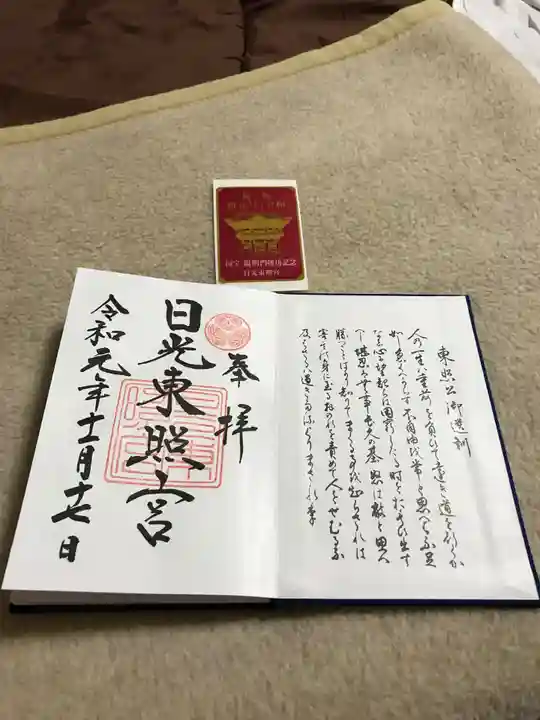 国宝 陽明門竣功記念
日光東照宮
奉拝
日光東照宮
令和元年十一月十七日
東照公御遺訓
人の一生は重荷を負ひて遠き道を行くが
如し急ぐべからず不自由を常と思へば不足
なし心に望起らば困窮したる時を思ひ出す
べし堪忍は無事長久の基怒は敵と思へ
勝つことばかり知りてまくるを知らざれば
害其の身に至るおのれを責めて人をせむるな
及ばざるは過ぎたるよりまされり